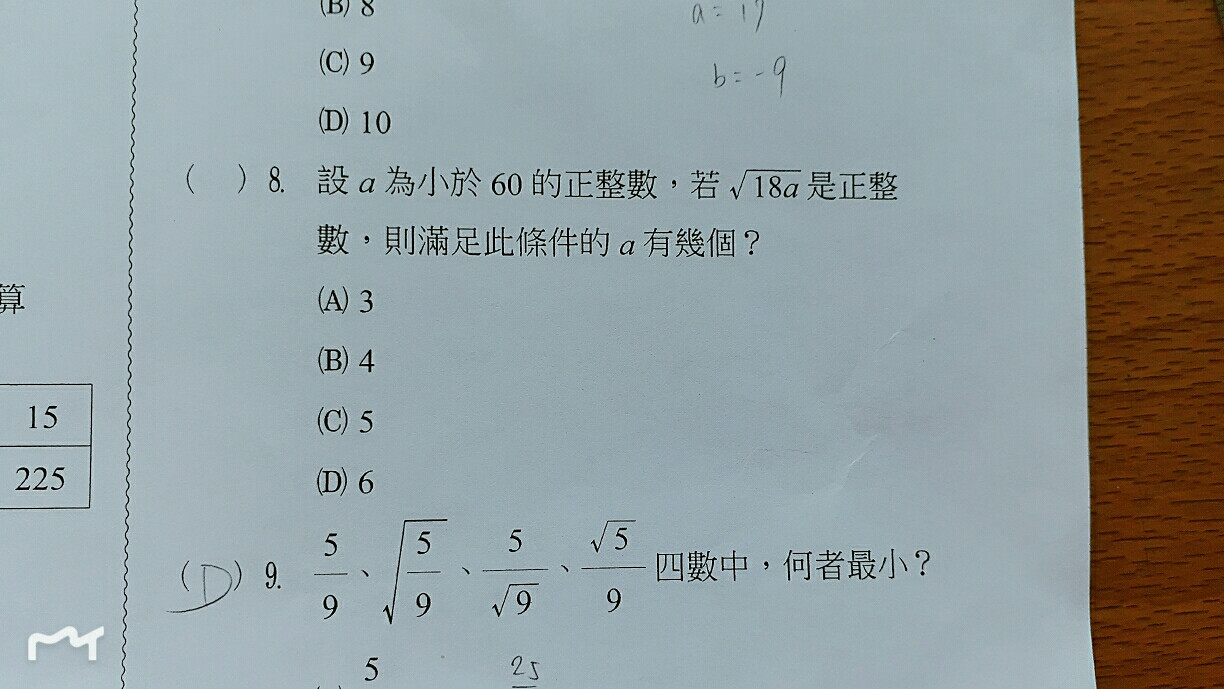 (B) 8
a = 17
(C) 9
b = -9
(D) 10
( ) 8. 設 a 為小於 60 的正整數，若 √18a 是正整
數，則滿足此條件的 a 有幾個？
算
(A) 3
(B) 4
15
(C) 5
225
(D) 6
(D) 9. 5/9、√(5/9)、5/√9、√5/9 四數中，何者最小？
5
25